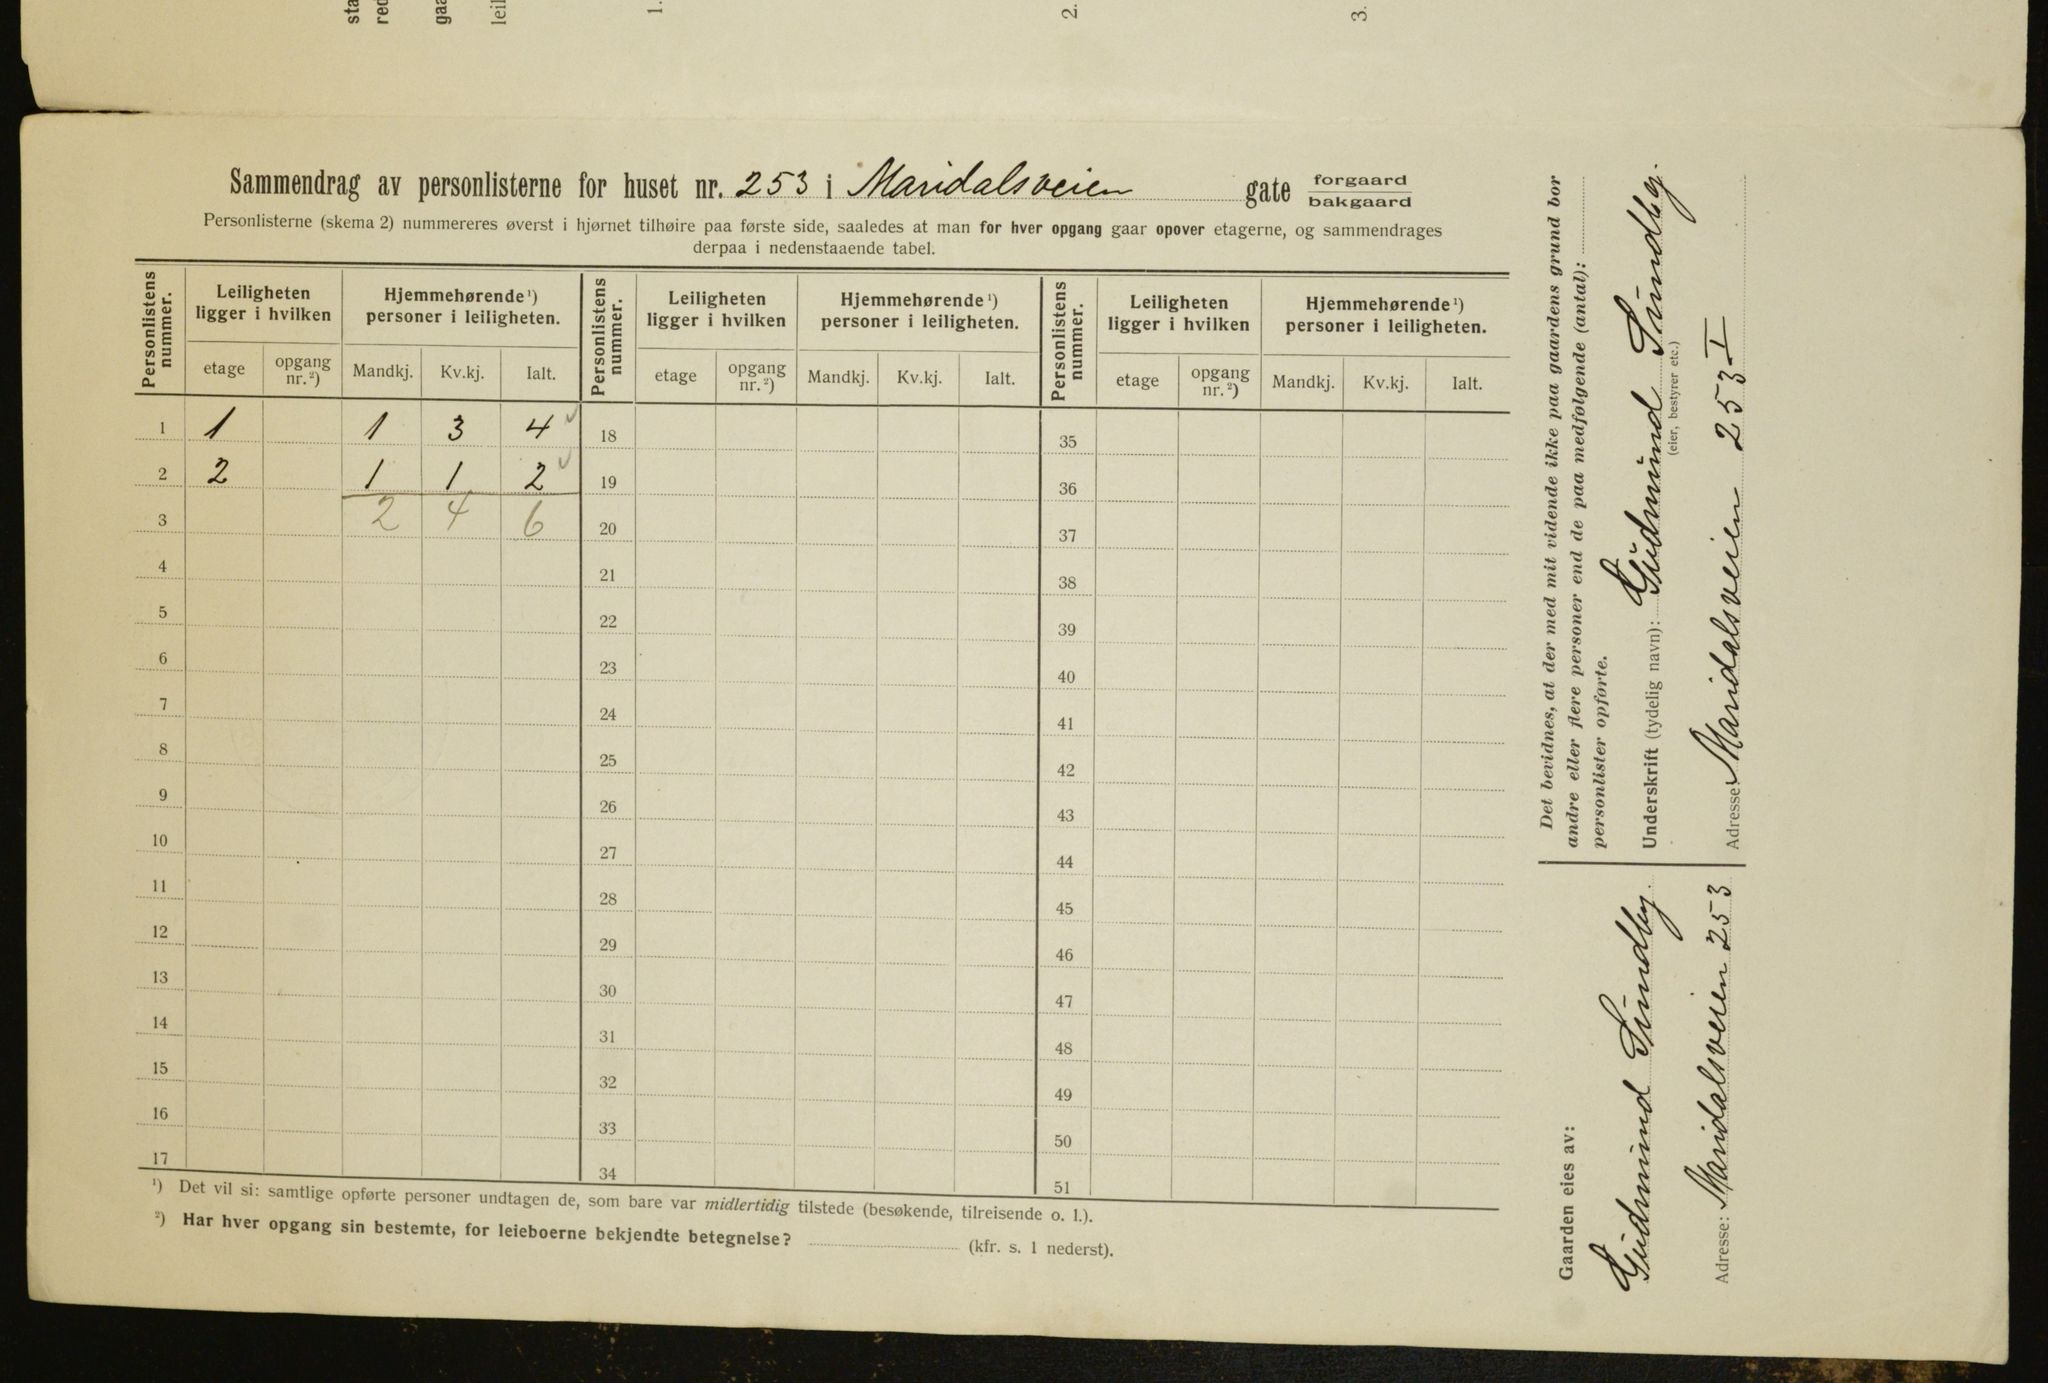 sta
red
gaa
leil
1.
2.
3.
Sammendrag av personlisterne for huset nr. 253 i Maridalsveien gate forgaard
bakgaard
Personlisterne (skema 2) nummereres øverst i hjørnet tilhøire paa første side, saaledes at man for hver opgang gaar opover etagerne, og sammendrages
derpaa i nedenstaaende tabel.
Personlistens nummer. | Leiligheten ligger i hvilken | Hjemmehørende ¹) personer i leiligheten. | Personlistens nummer. | Leiligheten ligger i hvilken | Hjemmehørende ¹) personer i leiligheten. | Personlistens nummer. | Leiligheten ligger i hvilken | Hjemmehørende ¹) personer i leiligheten.
etage | opgang nr. ²) | Mandkj. | Kv.kj. | Ialt. | etage | opgang nr. ²) | Mandkj. | Kv.kj. | Ialt. | etage | opgang nr. ²) | Mandkj. | Kv.kj. | Ialt.
1 1 1 3 4 ✓ 18 35
2 2 1 1 2 ✓ 19 36
3 2 4 6 20 37
4 21 38
5 22 39
6 23 40
7 24 41
8 25 42
9 26 43
10 27 44
11 28 45
12 29 46
13 30 47
14 31 48
15 32 49
16 33 50
17 34 51
¹) Det vil si: samtlige opførte personer undtagen de, som bare var midlertidig tilstede (besøkende, tilreisende o. l.).
²) Har hver opgang sin bestemte, for leieboerne bekjendte betegnelse? (kfr. s. 1 nederst).
Det bevidnes, at der med mit vidende ikke paa gaardens grund bor
andre eller flere personer end de paa medfølgende (antal):
personlister opførte.
Underskrift (tydelig navn): Gudmund Sundby.
(eier, bestyrer etc.)
Adresse: Maridalsveien 253 I
Gaarden eies av:
Gudmund Sundby.
Adresse: Maridalsveien 253